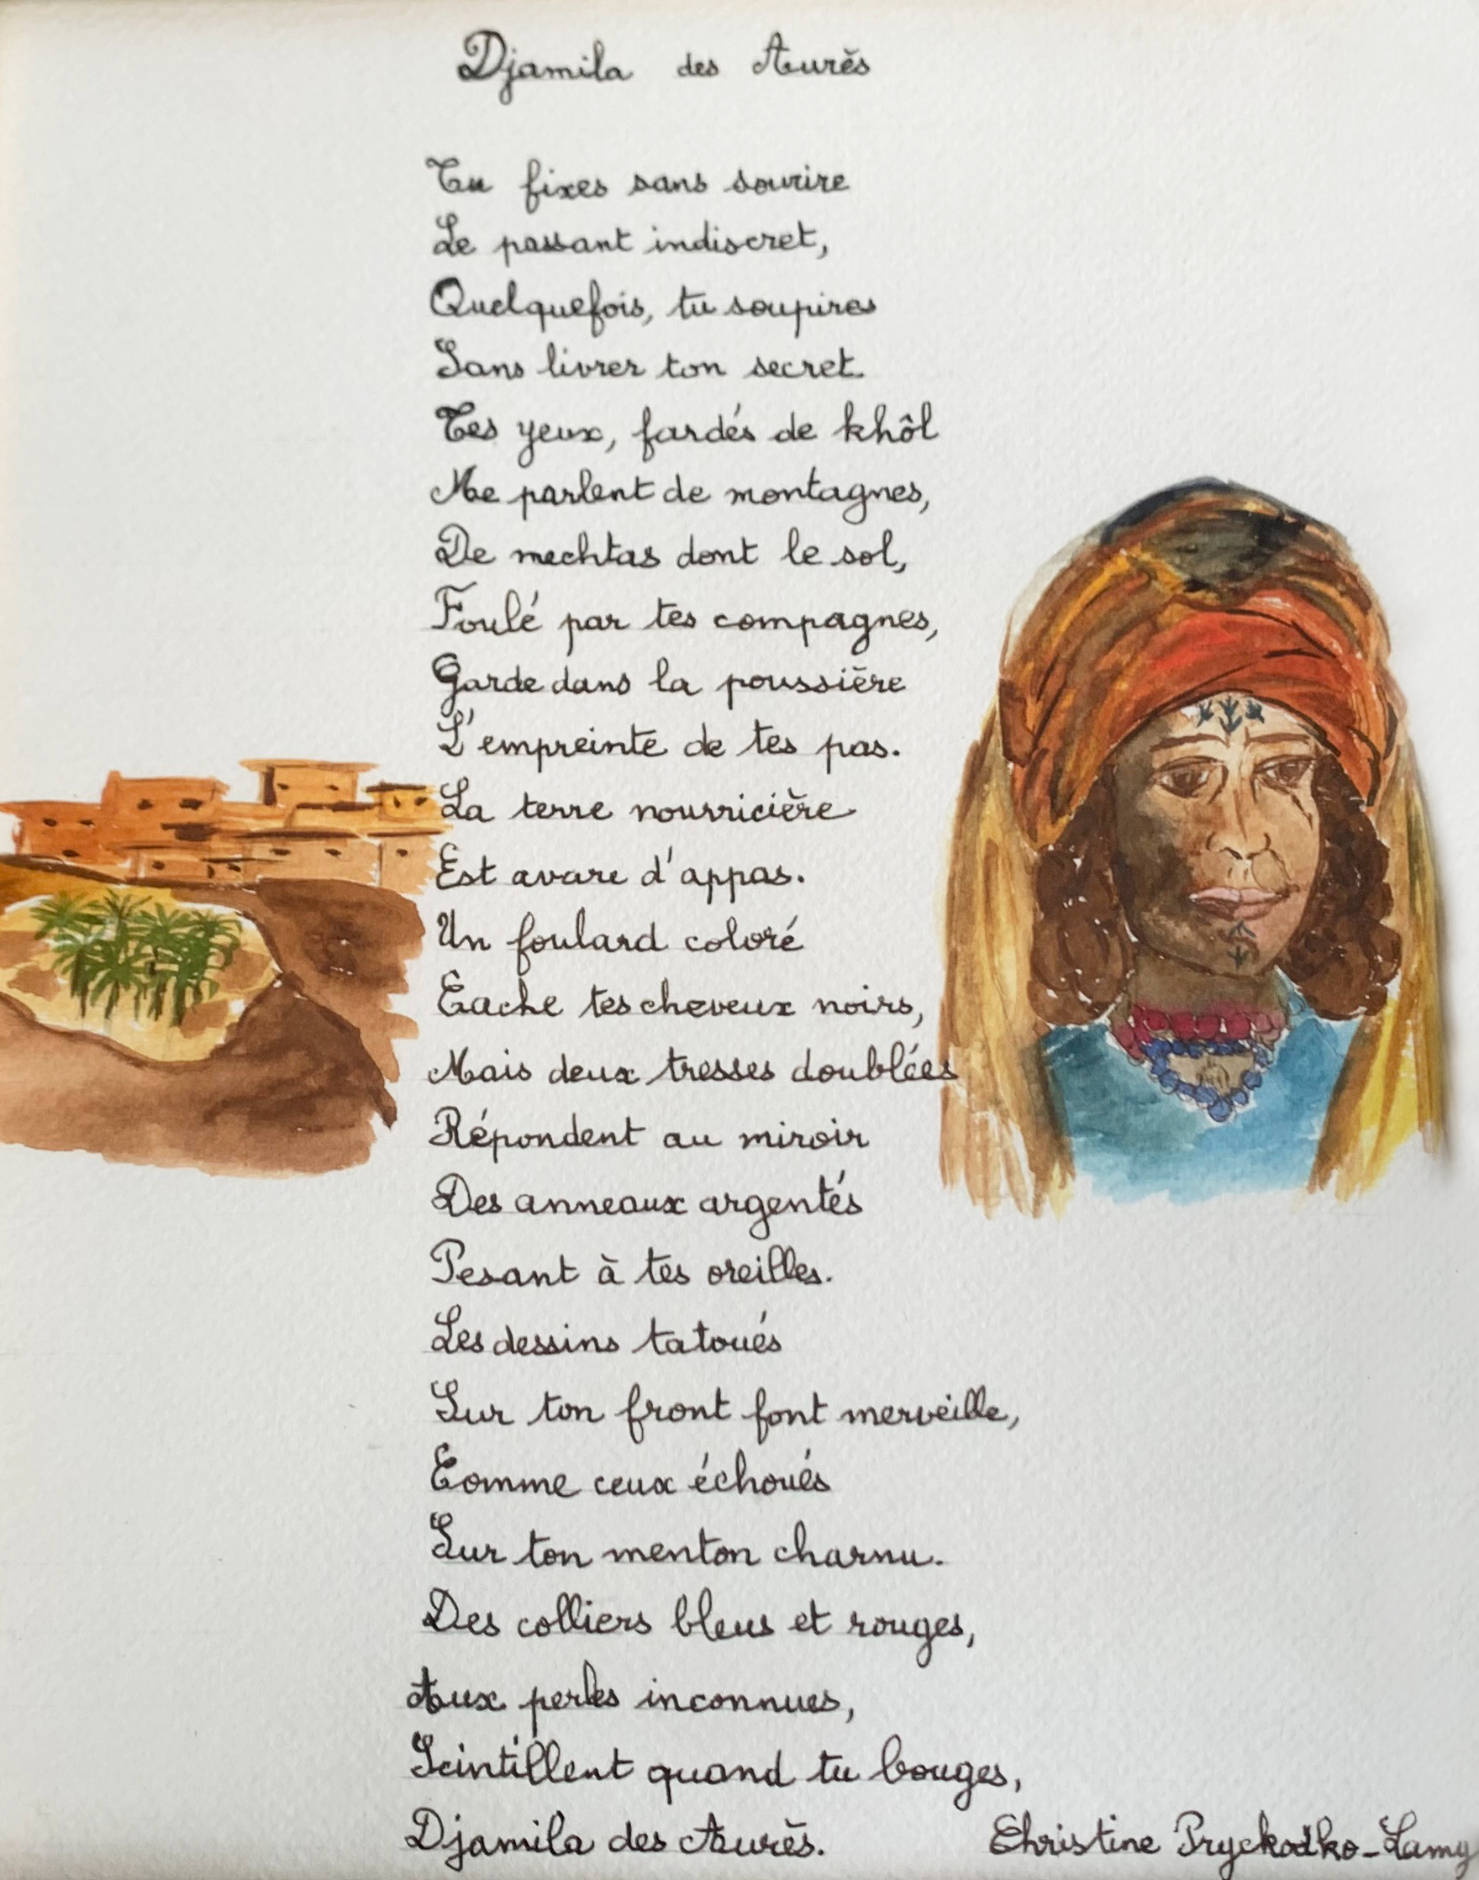 Djamila des Aurès
Tu fixes sans sourire
Le passant indiscret,
Quelquefois, tu soupires
Sans livrer ton secret.
Tes yeux, fardés de khôl
Me parlent de montagnes,
De mechtas dont le sol,
Foulé par tes compagnes,
Garde dans la poussière
L'empreinte de tes pas.
La terre nourricière
Est avare d'appas.
Un foulard coloré
Cache tes cheveux noirs,
Mais deux tresses doublées
Répondent au miroir
Des anneaux argentés
Pesant à tes oreilles.
Les dessins tatoués
Sur ton front font merveille,
Comme ceux échoués
Sur ton menton charnu.
Des colliers bleus et rouges,
Aux perles inconnues,
Scintillent quand tu bouges,
Djamila des Aurès.
Christine Pryckodko-Lamy